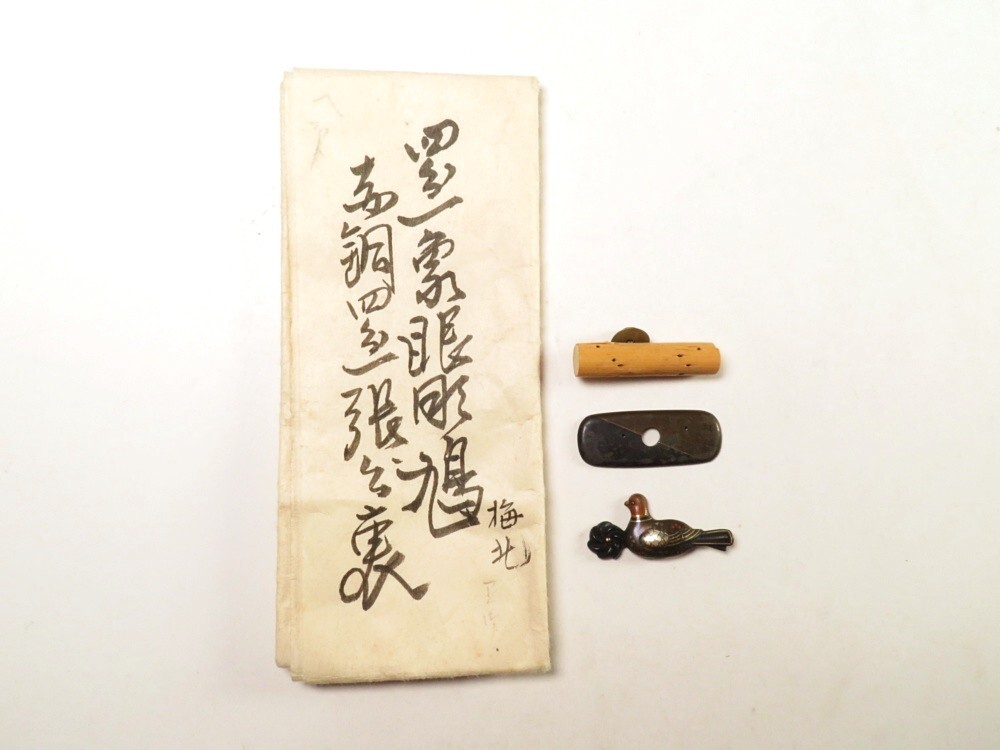 四分一象眼彫鳩
梅
赤銅四分一張分裏